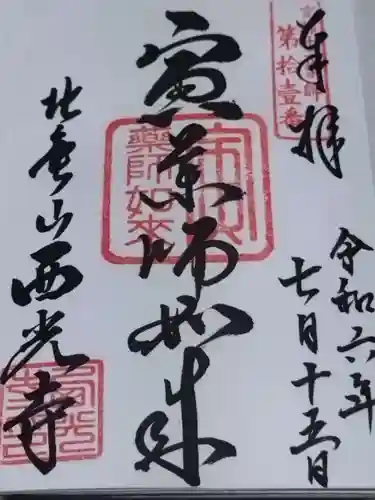 奉拝
第拾壹番
令和六年
七月十五日
寅薬師如来
薬師如来
北向山西光寺